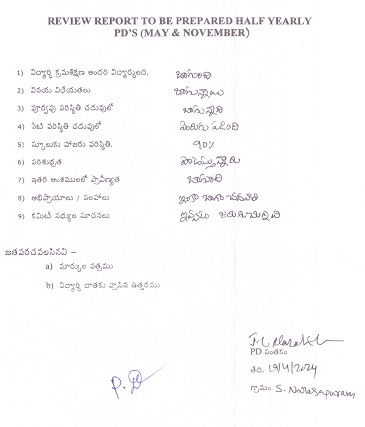 REVIEW REPORT TO BE PREPARED HALF YEARLY
PD'S (MAY & NOVEMBER)
1) విద్యార్థి క్రమశిక్షణ అందరి విద్యార్థులది. బాగుంది
2) వినయ విధేయతలు బాగున్నాయి
3) పూర్వపు పరిస్థితి చదువులో బాగున్నది
4) నేటి పరిస్థితి చదువులో మెరుగు పడింది
5) స్కూలుకు హాజరు పరిస్థితి. 90%
6) పరిశుభ్రత పాటిస్తున్నారు
7) ఇతర అంశములలో ప్రావీణ్యత బాగుంది
8) అభిప్రాయాలు / సలహాలు ఇంకా బాగా చదవాలి
9) కమిటీ సభ్యుల సూచనలు
జతపరచవలసినవి –
a) మార్కుల పత్రము
b) విద్యార్థి దాతకు వ్రాసిన ఉత్తరము
PD సంతకం
P. D
తేది. 19/4/2024
గ్రామం S. Narasapuram